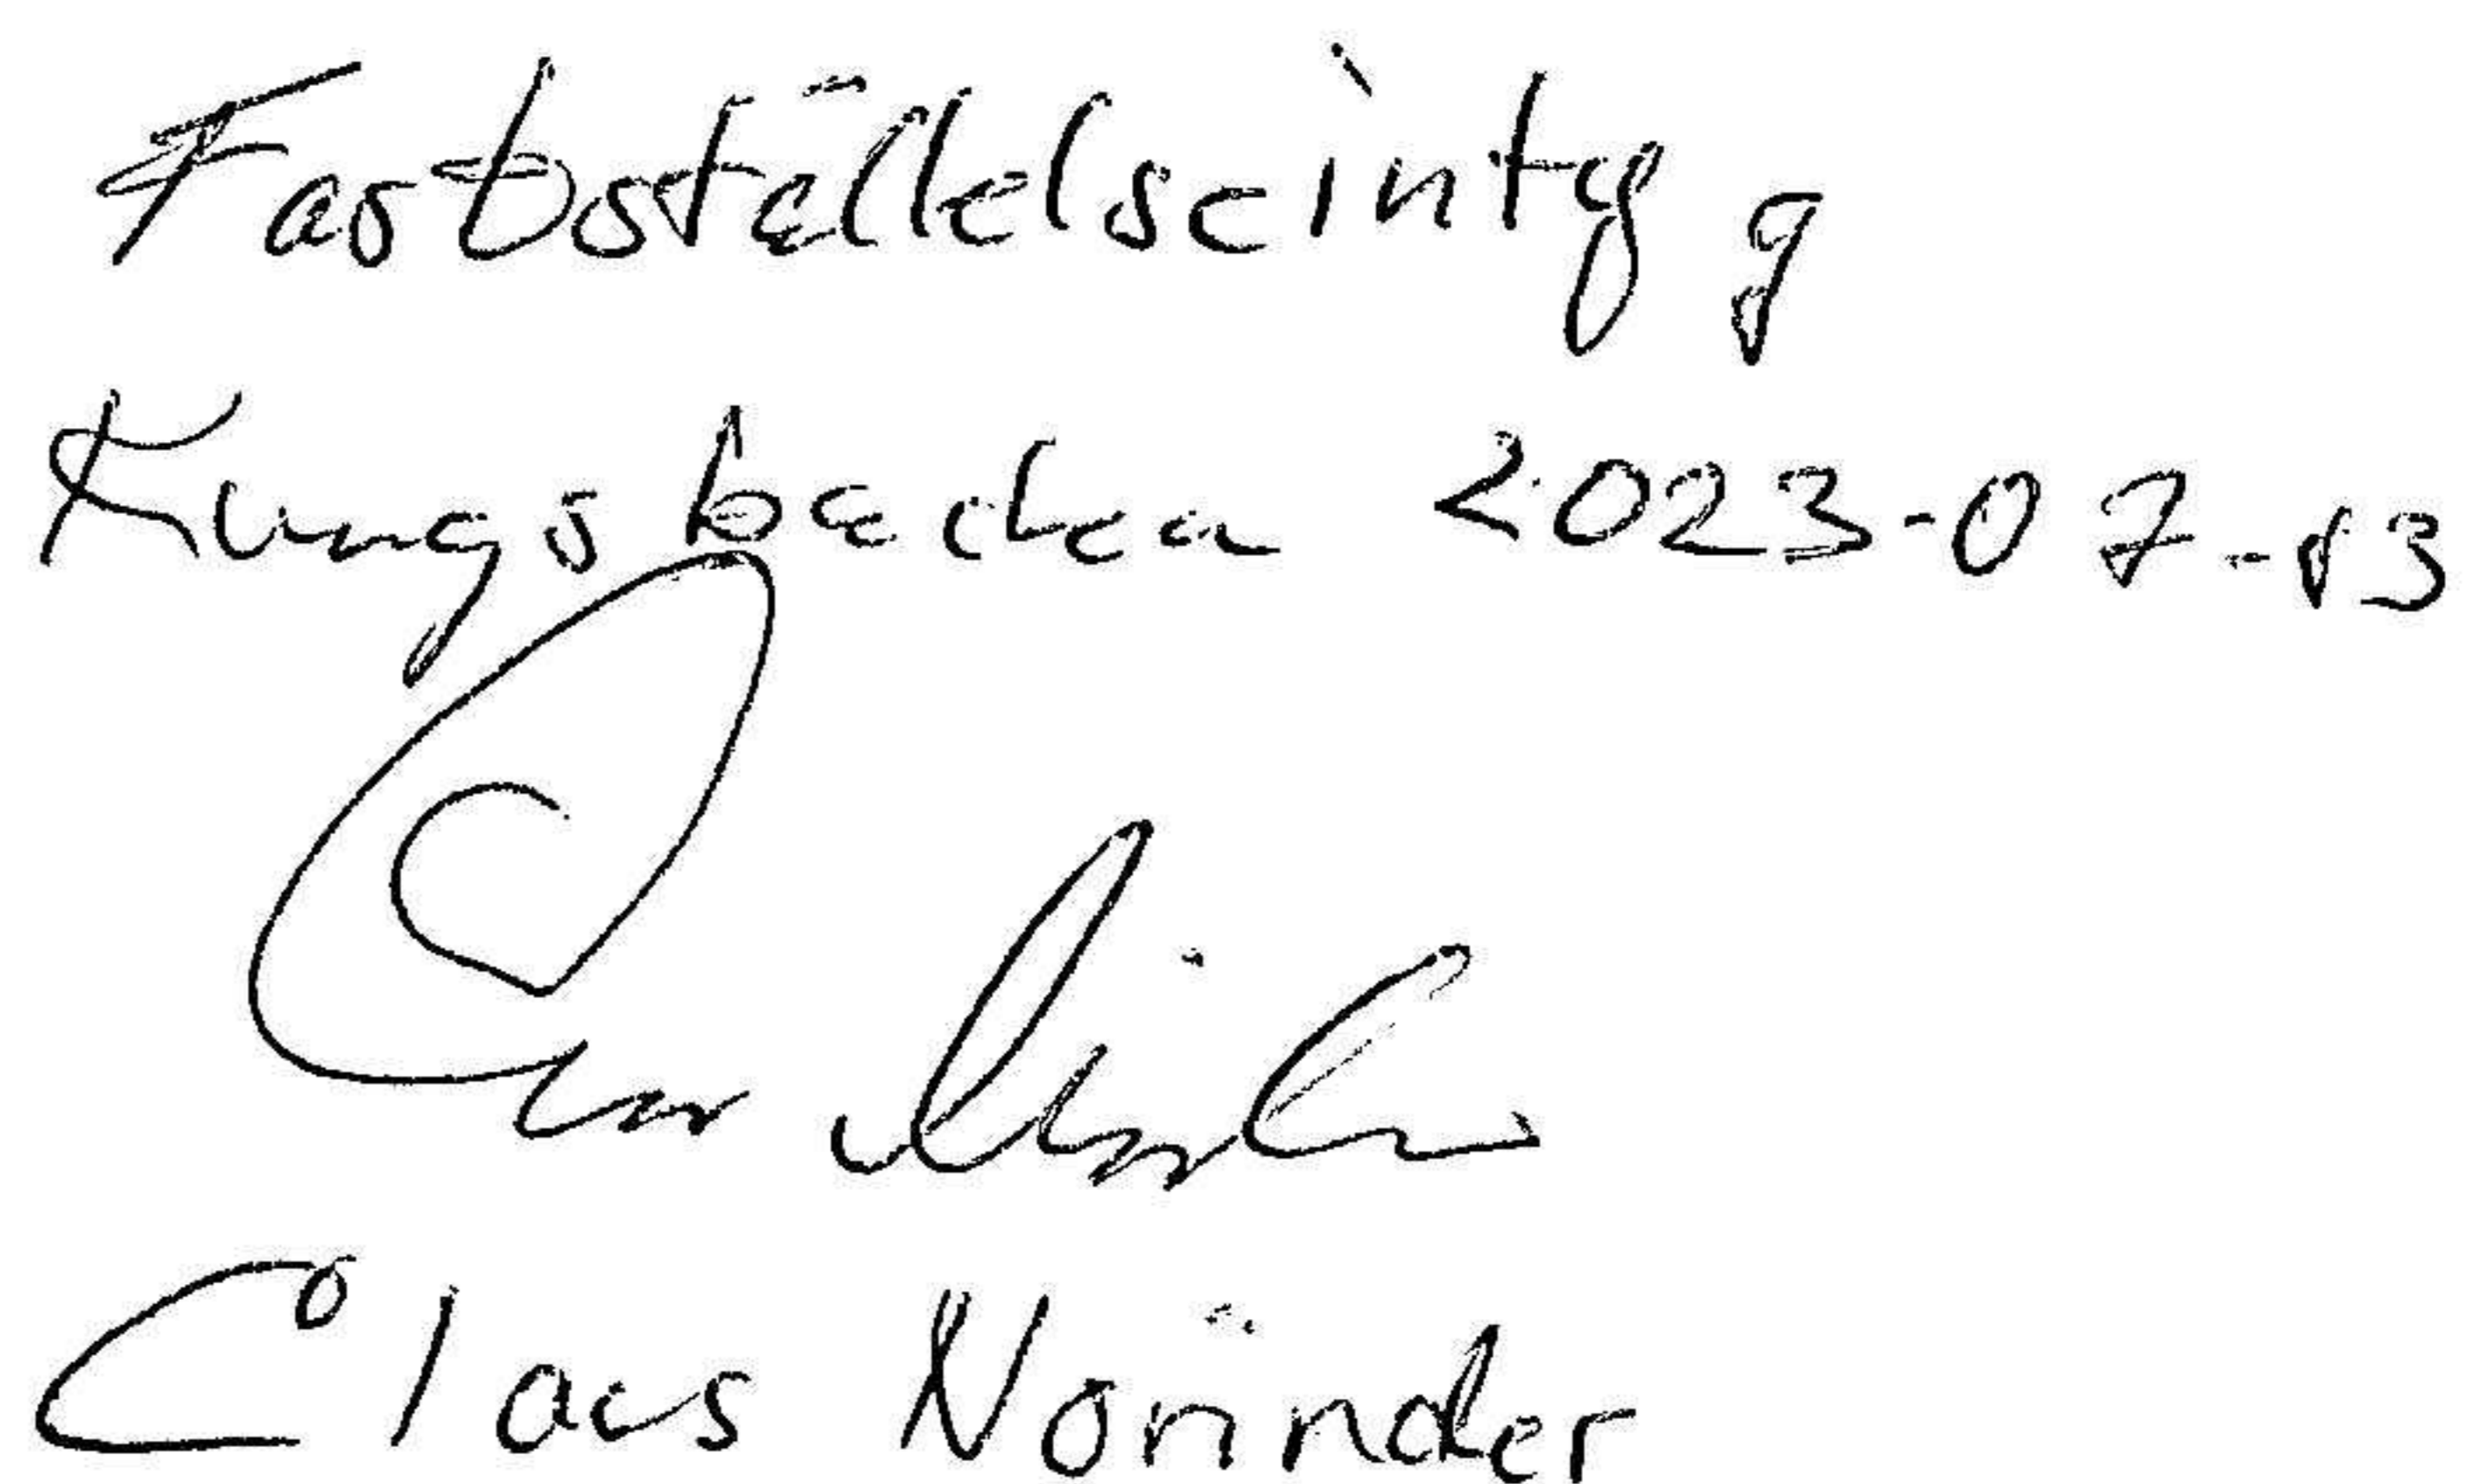 Fastställelseintyg
Kungsbacka 2023-07-13
Claes Norinder